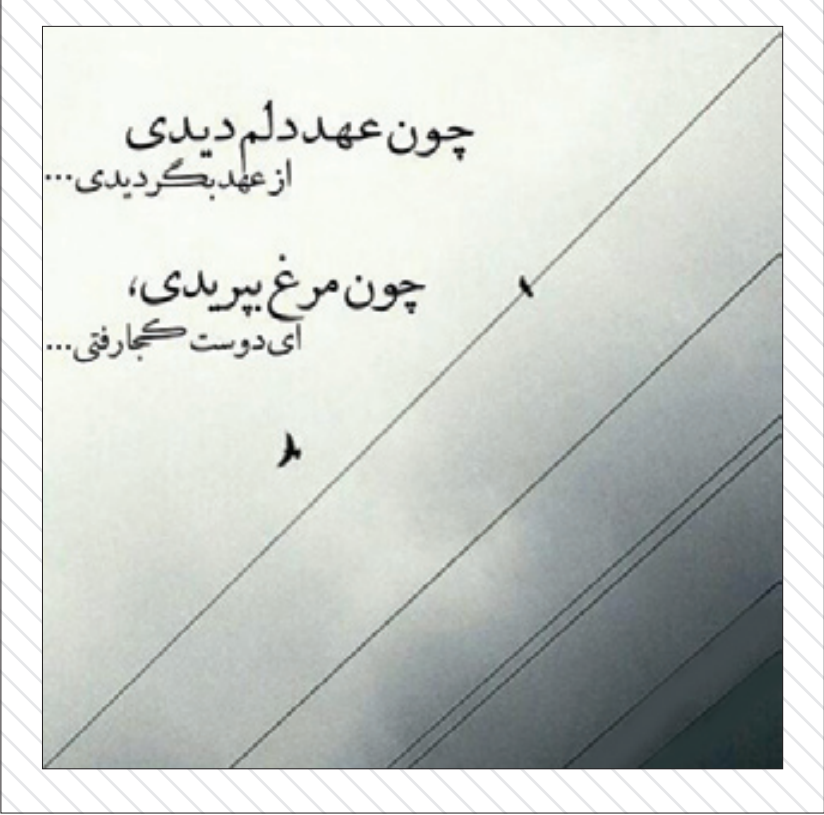 چون عهد دلم دیدی
از عهد بگردیدی...
چون مرغ بپریدی،
ای دوست کجا رفتی...